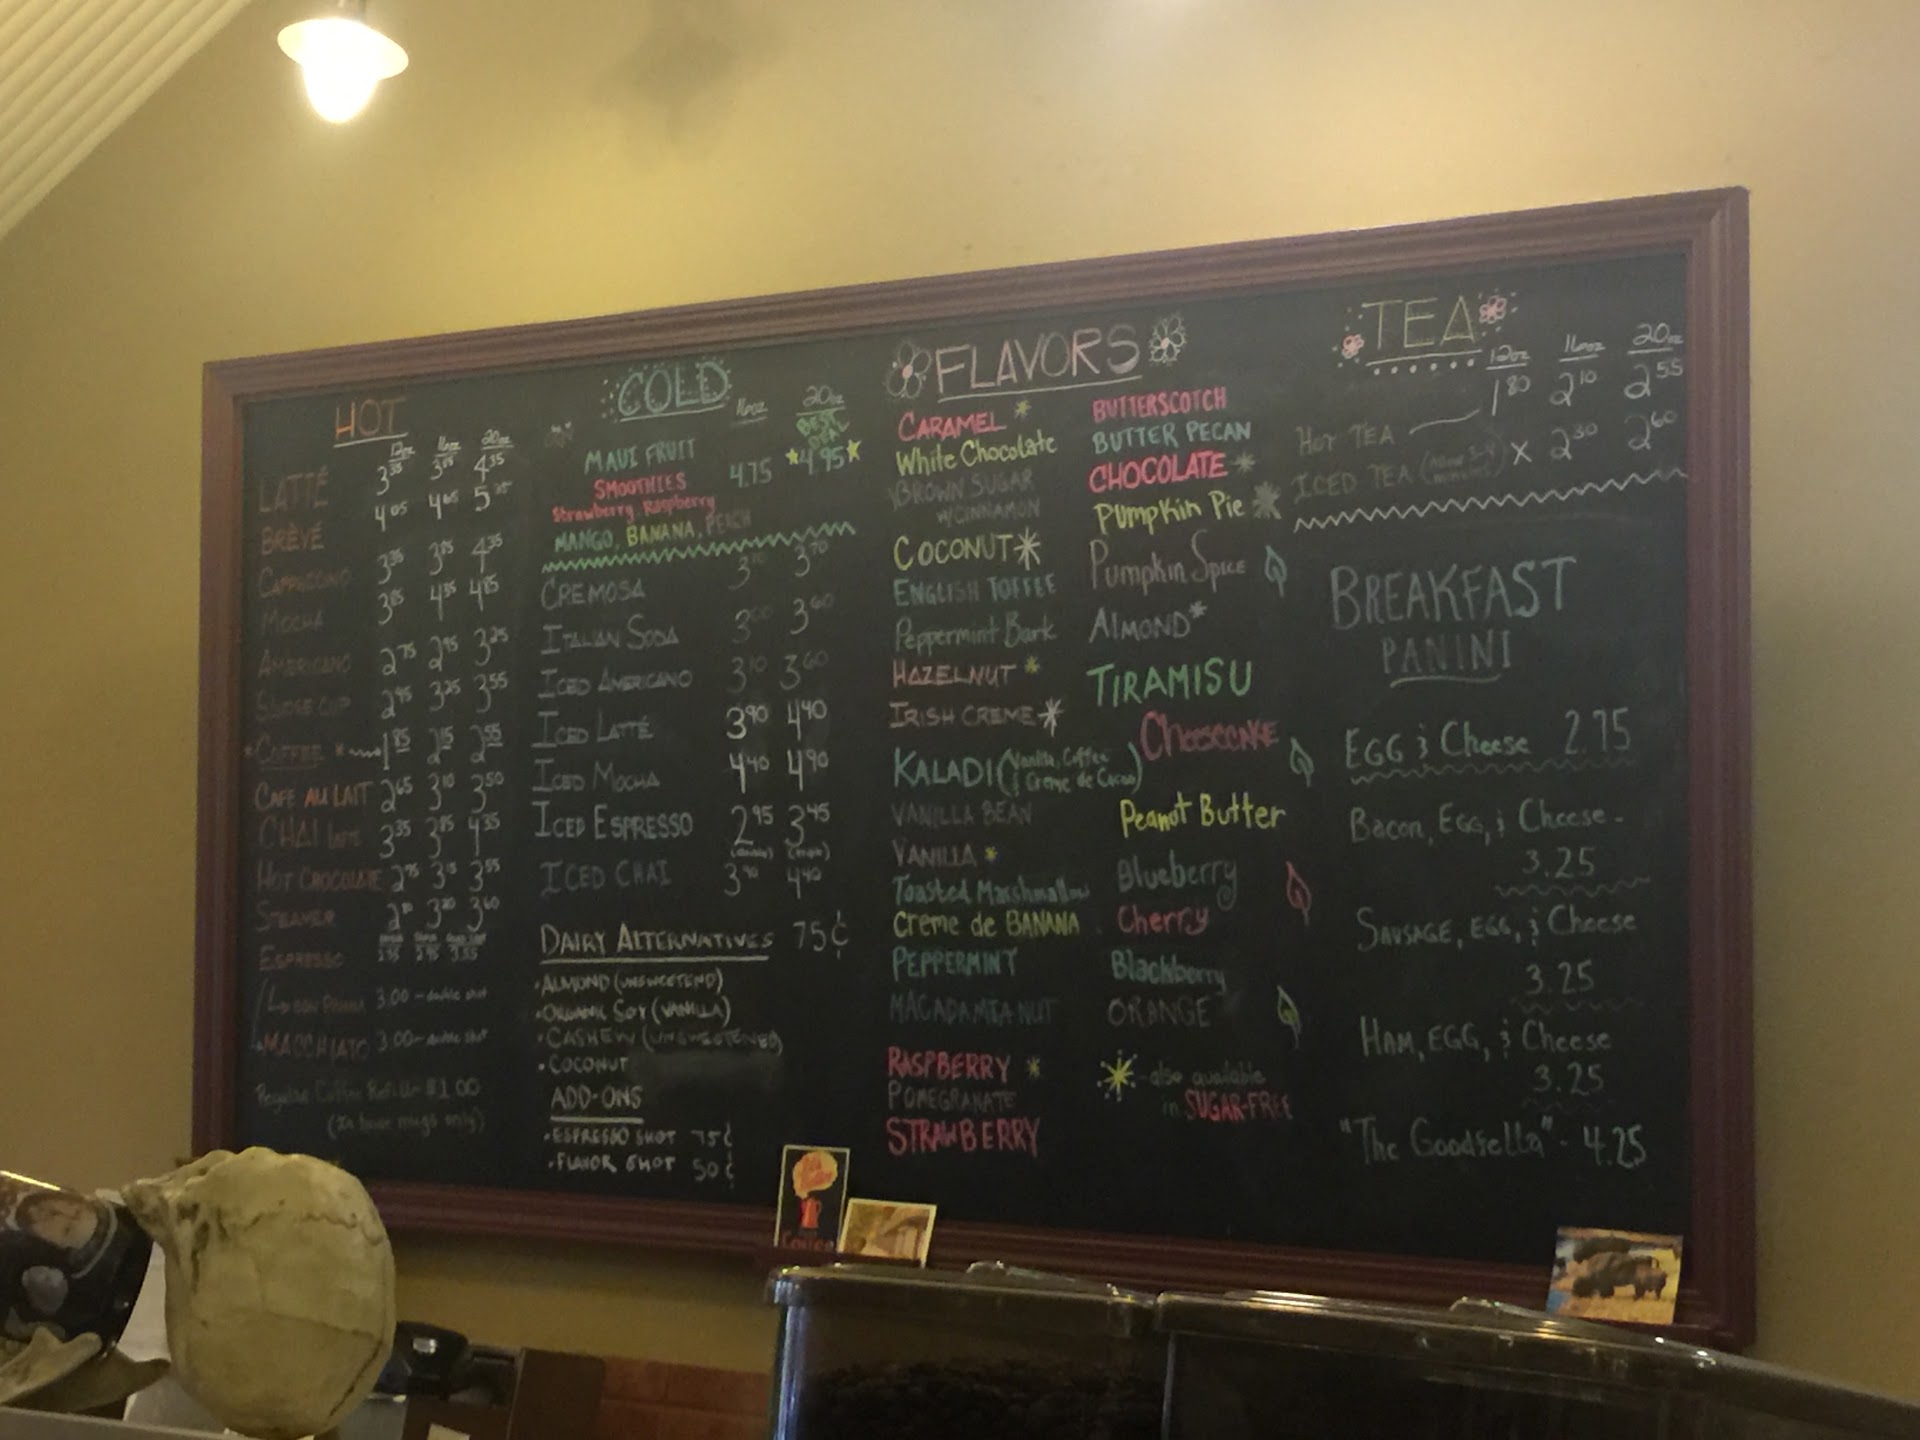 HOT
12oz 16oz 20oz
LATTÉ 3.35 3.85 4.35
BRÈVÉ 4.05 4.65 5.35
CAPPUCCINO 3.35 3.85 4.35
MOCHA 3.85 4.35 4.85
AMERICANO 2.75 2.95 3.25
SLUDGE CUP 2.95 3.25 3.55
*COFFEE* 1.85 2.15 2.55
CAFÉ AU LAIT 2.65 3.10 3.50
CHAI latte 3.35 3.85 4.35
HOT CHOCOLATE 3.55
STEAMER 3.60
ESPRESSO
CON PANNA 3.00 - double shot
MACCHIATO 3.00 - double shot
Regular Coffee Refill - $1.00
(In house mugs only)
COLD
16oz 20oz
BEST DEAL
MAUI FRUIT
SMOOTHIES 4.75 *4.95*
Strawberry, Raspberry
MANGO, BANANA, PEACH
CREMOSA 3.70
ITALIAN SODA 3.00 3.60
ICED AMERICANO 3.10 3.60
ICED LATTÉ 3.90 4.40
ICED MOCHA 4.40 4.90
ICED ESPRESSO 2.95 3.45
(double) (triple)
ICED CHAI 3.90 4.40
DAIRY ALTERNATIVES 75¢
•ALMOND (UNSWEETEND)
•ORGANIC SOY (VANILLA)
•CASHEW (UNSWEETENED)
•COCONUT
ADD-ONS
•ESPRESSO SHOT 75¢
•FLAVOR SHOT 50¢
FLAVORS
CARAMEL *
White Chocolate
BROWN SUGAR
W/CINNAMON
COCONUT *
ENGLISH TOFFEE
Peppermint Bark
HAZELNUT *
IRISH CREME *
KALADI (Vanilla, Coffee
& Creme de Cacao)
VANILLA BEAN
VANILLA *
Toasted Marshmallow
Creme de BANANA
PEPPERMINT
MACADAMIA NUT
RASPBERRY *
POMEGRANATE
STRAWBERRY
BUTTERSCOTCH
BUTTER PECAN
CHOCOLATE *
PUMPKIN PIE *
Pumpkin Spice
ALMOND *
TIRAMISU
CHEESECAKE
Peanut Butter
Blueberry
Cherry
Blackberry
ORANGE
* - also available
in SUGAR-FREE
TEA
12oz 16oz 20oz
HOT TEA 1.80 2.10 2.55
ICED TEA X 2.30 2.60
BREAKFAST
PANINI
EGG & Cheese 2.75
Bacon, EGG, & Cheese -
3.25
SAUSAGE, EGG, & Cheese
3.25
HAM, EGG, & Cheese
3.25
"The Goodfella" - 4.25
Coffee